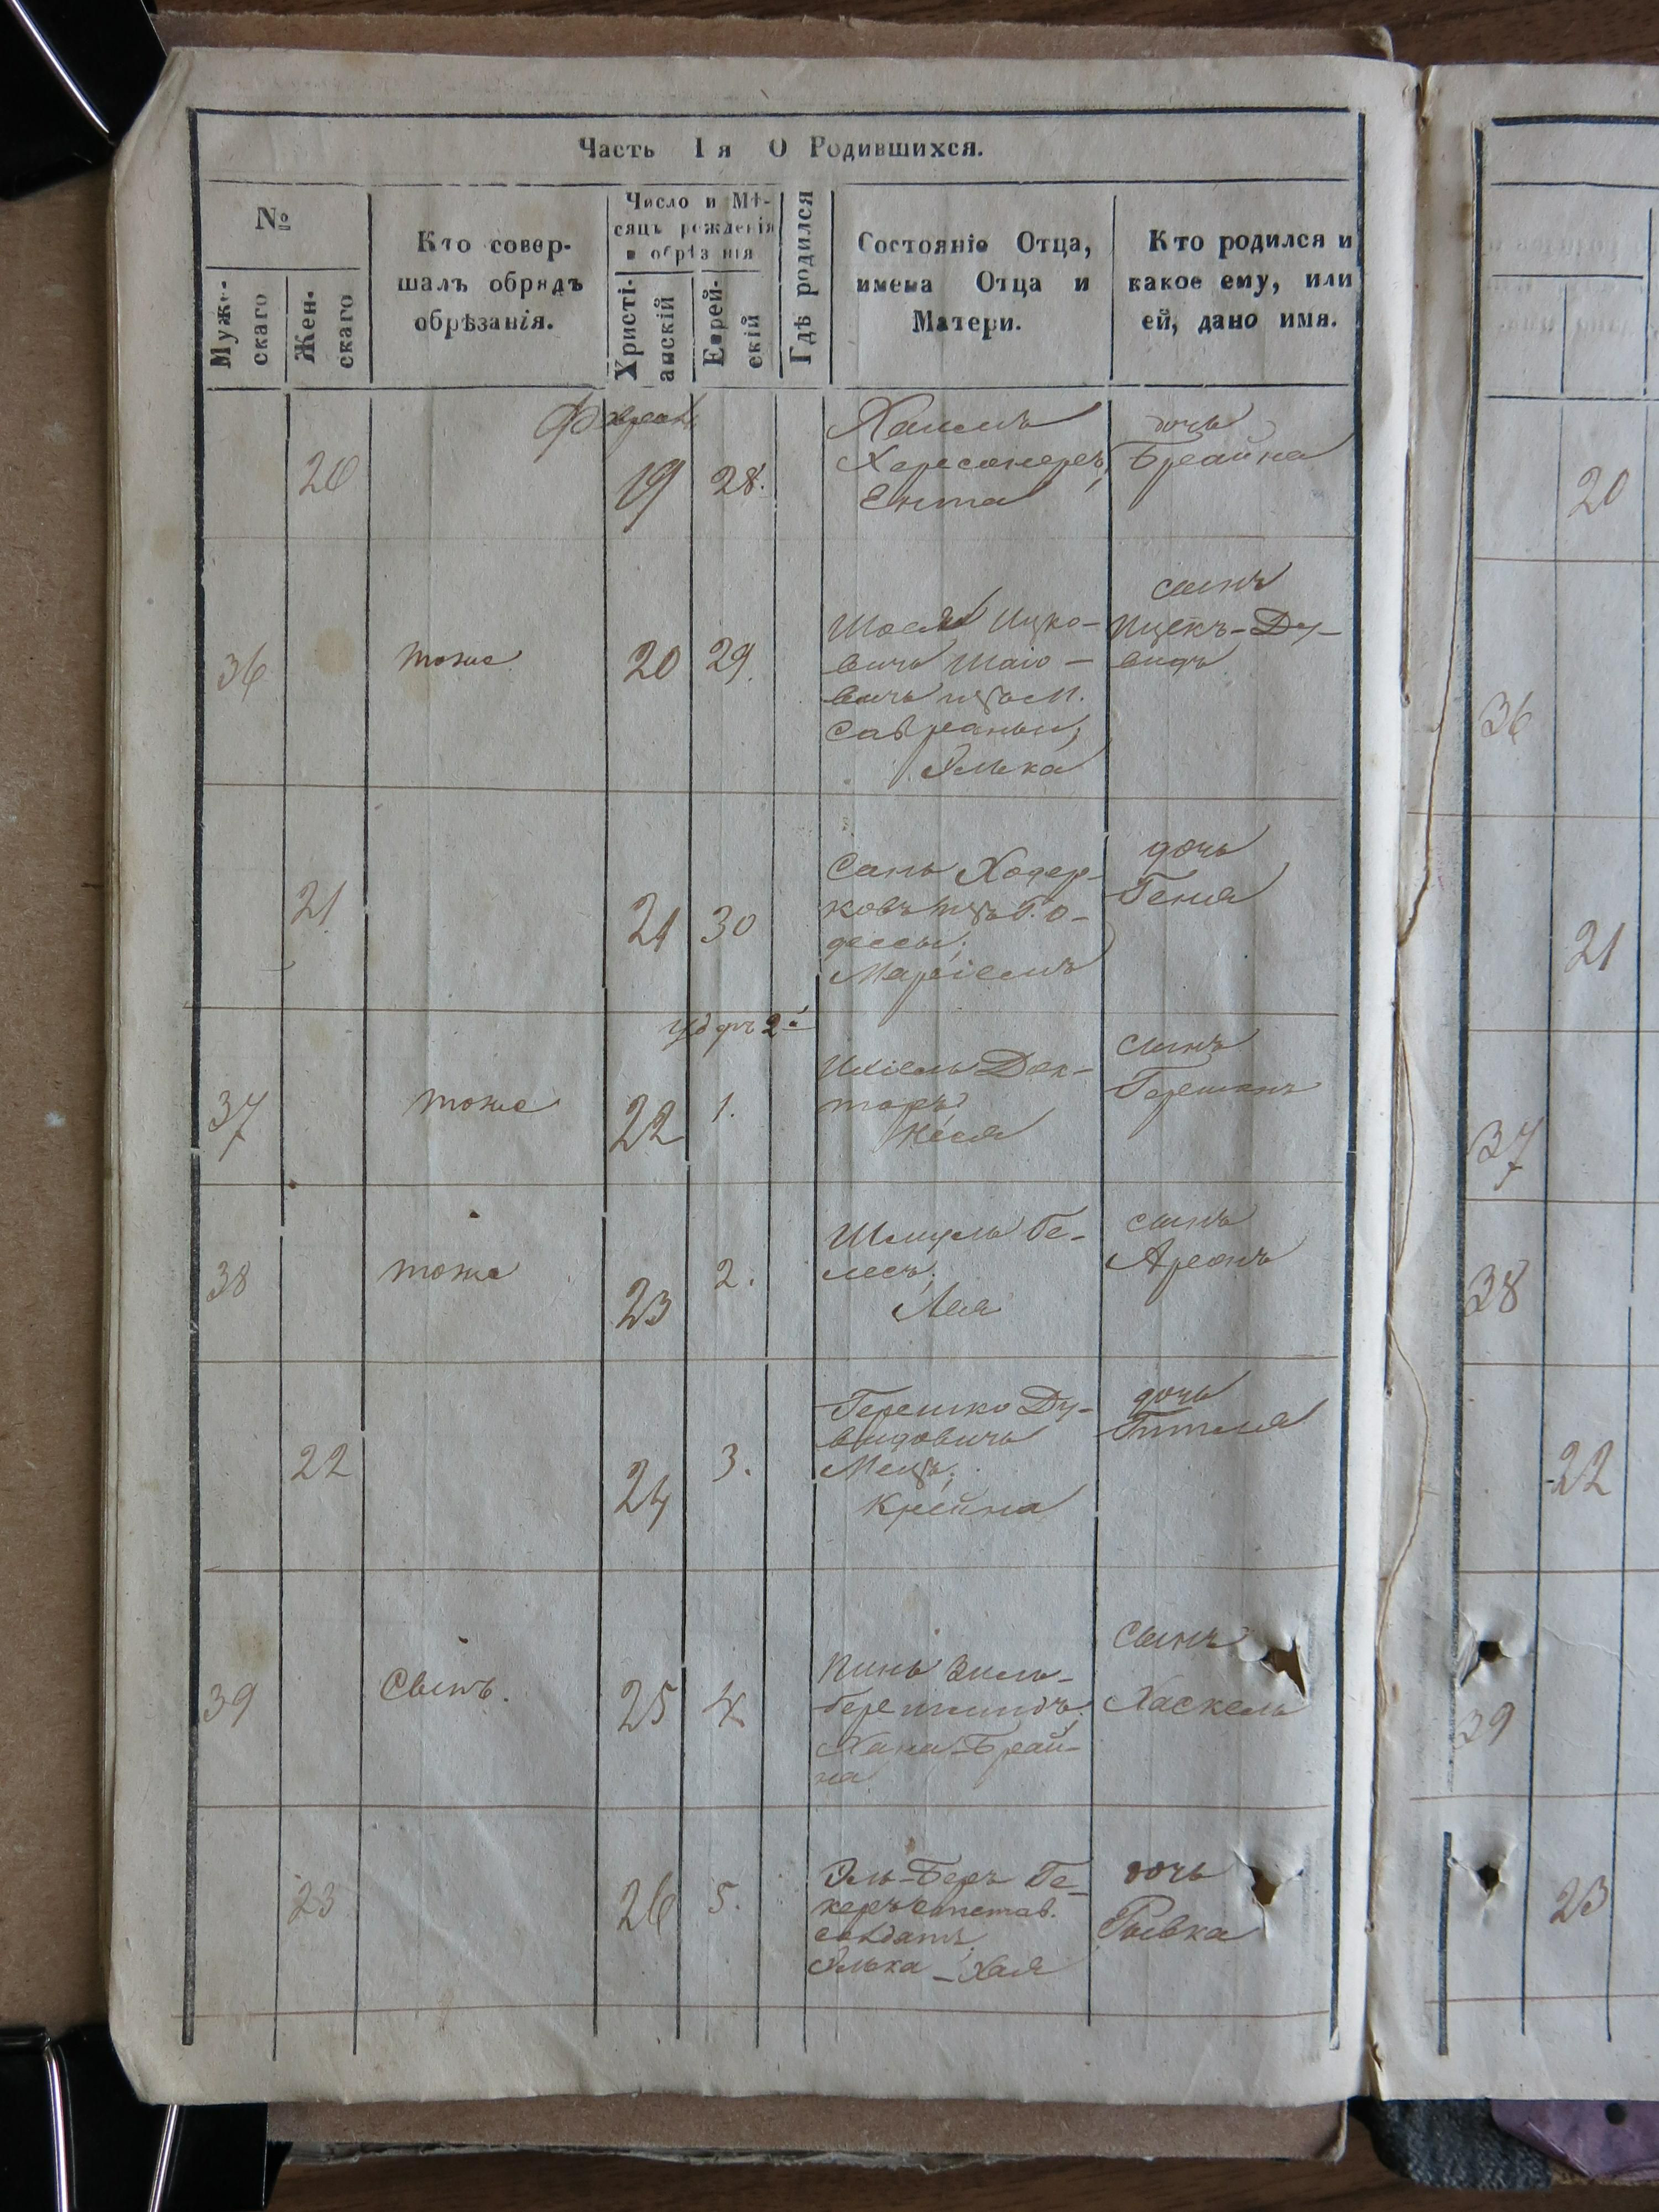 Часть I я О Родившихся.
№
Муже-
скаго
Жен-
скаго
Кто совер-
шалъ обрядъ
обрѣзанія.
Число и Мѣ-
сяцъ рожденія
и обрѣзанія
Христі-
анскій
Еврей-
скій
Гдѣ родился
Состояніе Отца,
имена Отца и
Матери.
Кто родился и
какое ему, или
ей, дано имя.
20
19
28.
Хаимъ
Херсонеръ,
Ента
дочь
Брайна
20
36
тоже
20
29.
Ицко-
вичъ
Саврани,
Элька
сынъ
Ицекъ-Ду-
видъ
36
21
21
30
Сань Ходер-
ковъ Г. О-
дессы;
Маріемъ
дочь
Геня
21
37
тоже
22
1.
Ихіель Док-
торъ
Неся
сынъ
Гершонъ
37
38
тоже
23
2.
Шмуль Бе-
лесъ;
Лея
сынъ
Аронъ
38
22
24
3.
Гершко Ду-
видовичъ
Мецъ;
Крейна
дочь
Гитля
22
39
Свитъ.
25
4
Пинь Зиль-
берштидъ;
Хана-Брай-
на
сынъ
Хаскель
39
23
26
5.
Эль-Беръ Бе-
керъ отстав.
солдатъ
Элька-Хая
дочь
Рывка
23